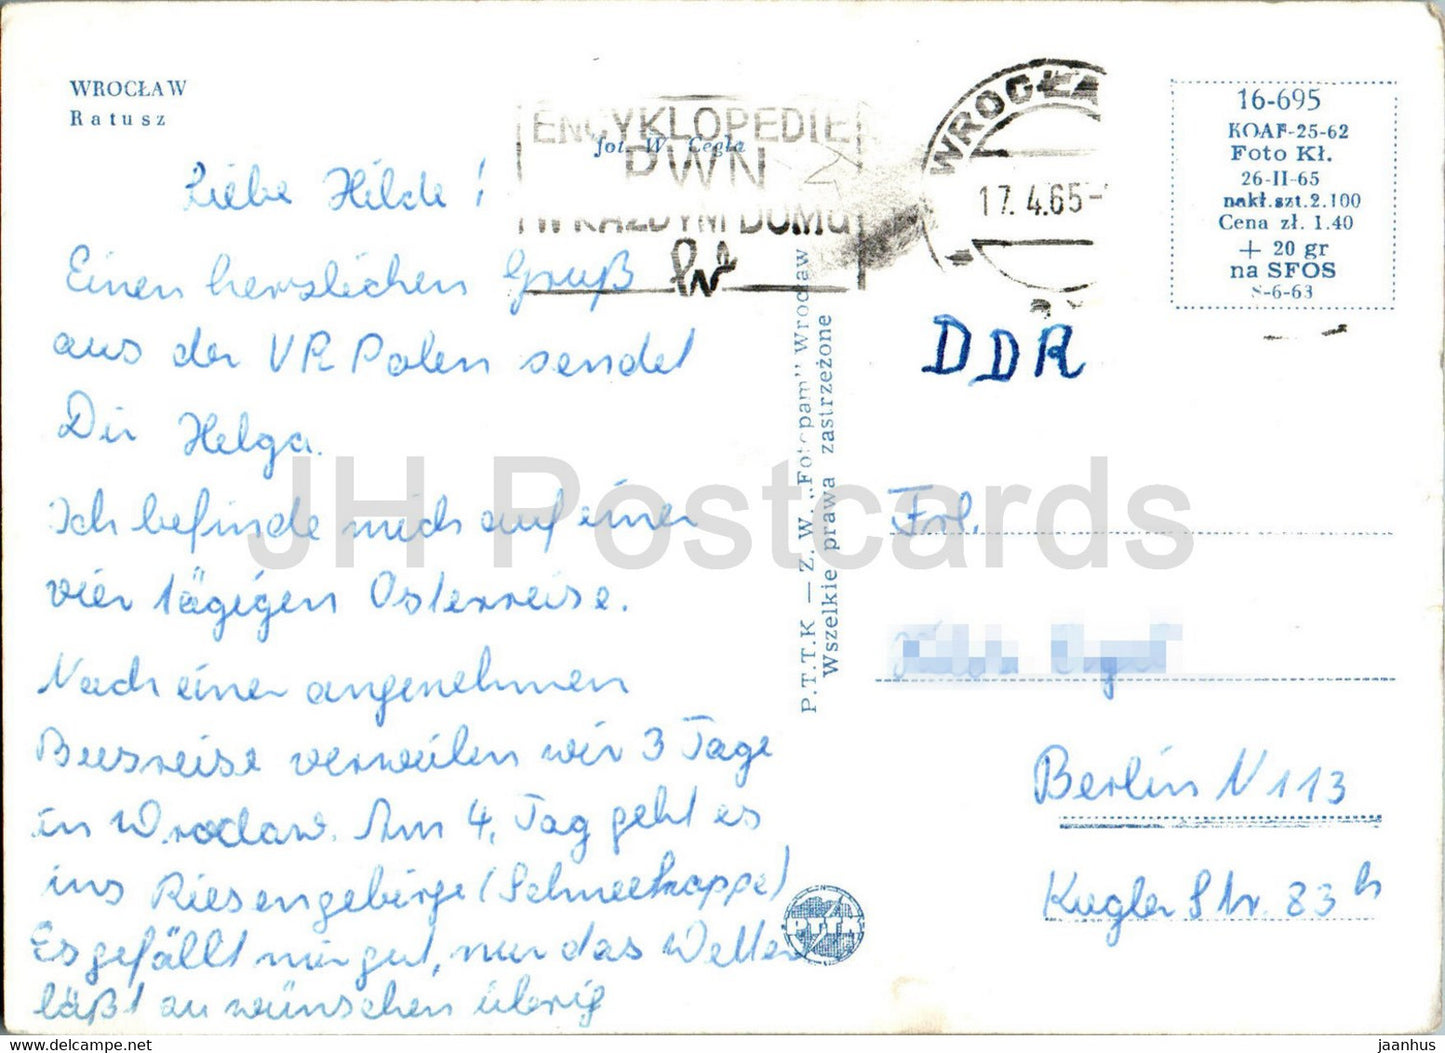 WROCŁAW
Ratusz
fot. W. Cegła
ENCYKLOPEDIE
PWN
W KAŻDYM DOMU
WROCŁA
17.4.65
16-695
KOAF-25-62
Foto Kł.
26-II-65
nakł.szt.2.100
Cena zł. 1.40
+ 20 gr
na SFOS
S-6-63
Liebe Hilde!
Einen herzlichen Gruß
aus der VR Polen sendet
Dir Helga.
Ich befinde mich auf einer
vier tägigen Osterreise.
Nach einer angenehmen
Busreise verweilen wir 3 Tage
in Wroclaw. Am 4. Tag geht es
ins Riesengebirge (Schneekappe)
Es gefällt mir gut, nur das Wetter
läßt zu wünschen übrig
P.T.T.K — Z. W. „Fotopam” Wrocław
Wszelkie prawa zastrzeżone
PTTK
DDR
Frl.
Berlin N 113
Kugler Str. 83 h
JH Postcards
www.delcampe.net
jaanhus